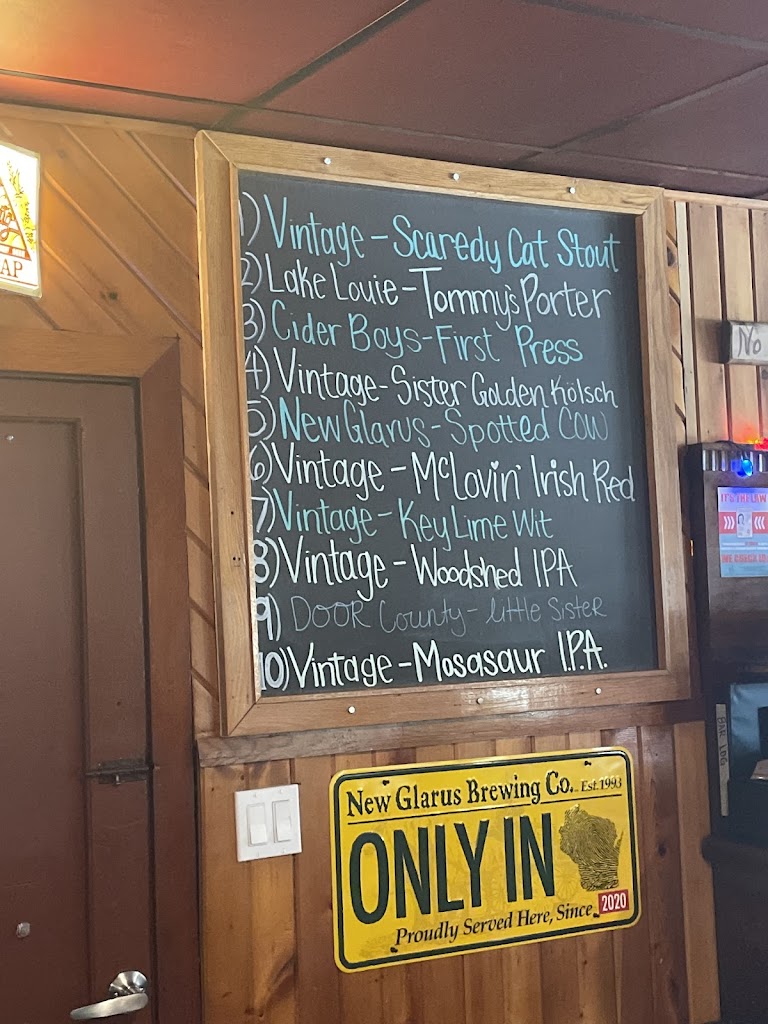 1) Vintage - Scaredy Cat Stout
2) Lake Louie - Tommy's Porter
3) Cider Boys - First Press
4) Vintage - Sister Golden Kölsch
5) New Glarus - Spotted Cow
6) Vintage - McLovin' Irish Red
7) Vintage - Key Lime Wit
8) Vintage - Woodshed IPA
9) Door County - Little Sister
10) Vintage - Mosasaur I.P.A.
AP
No
IT'S THE LAW
WE CHECK ID
BAR LOG
New Glarus Brewing Co. Est. 1993
ONLY IN
2020
Proudly Served Here, Since